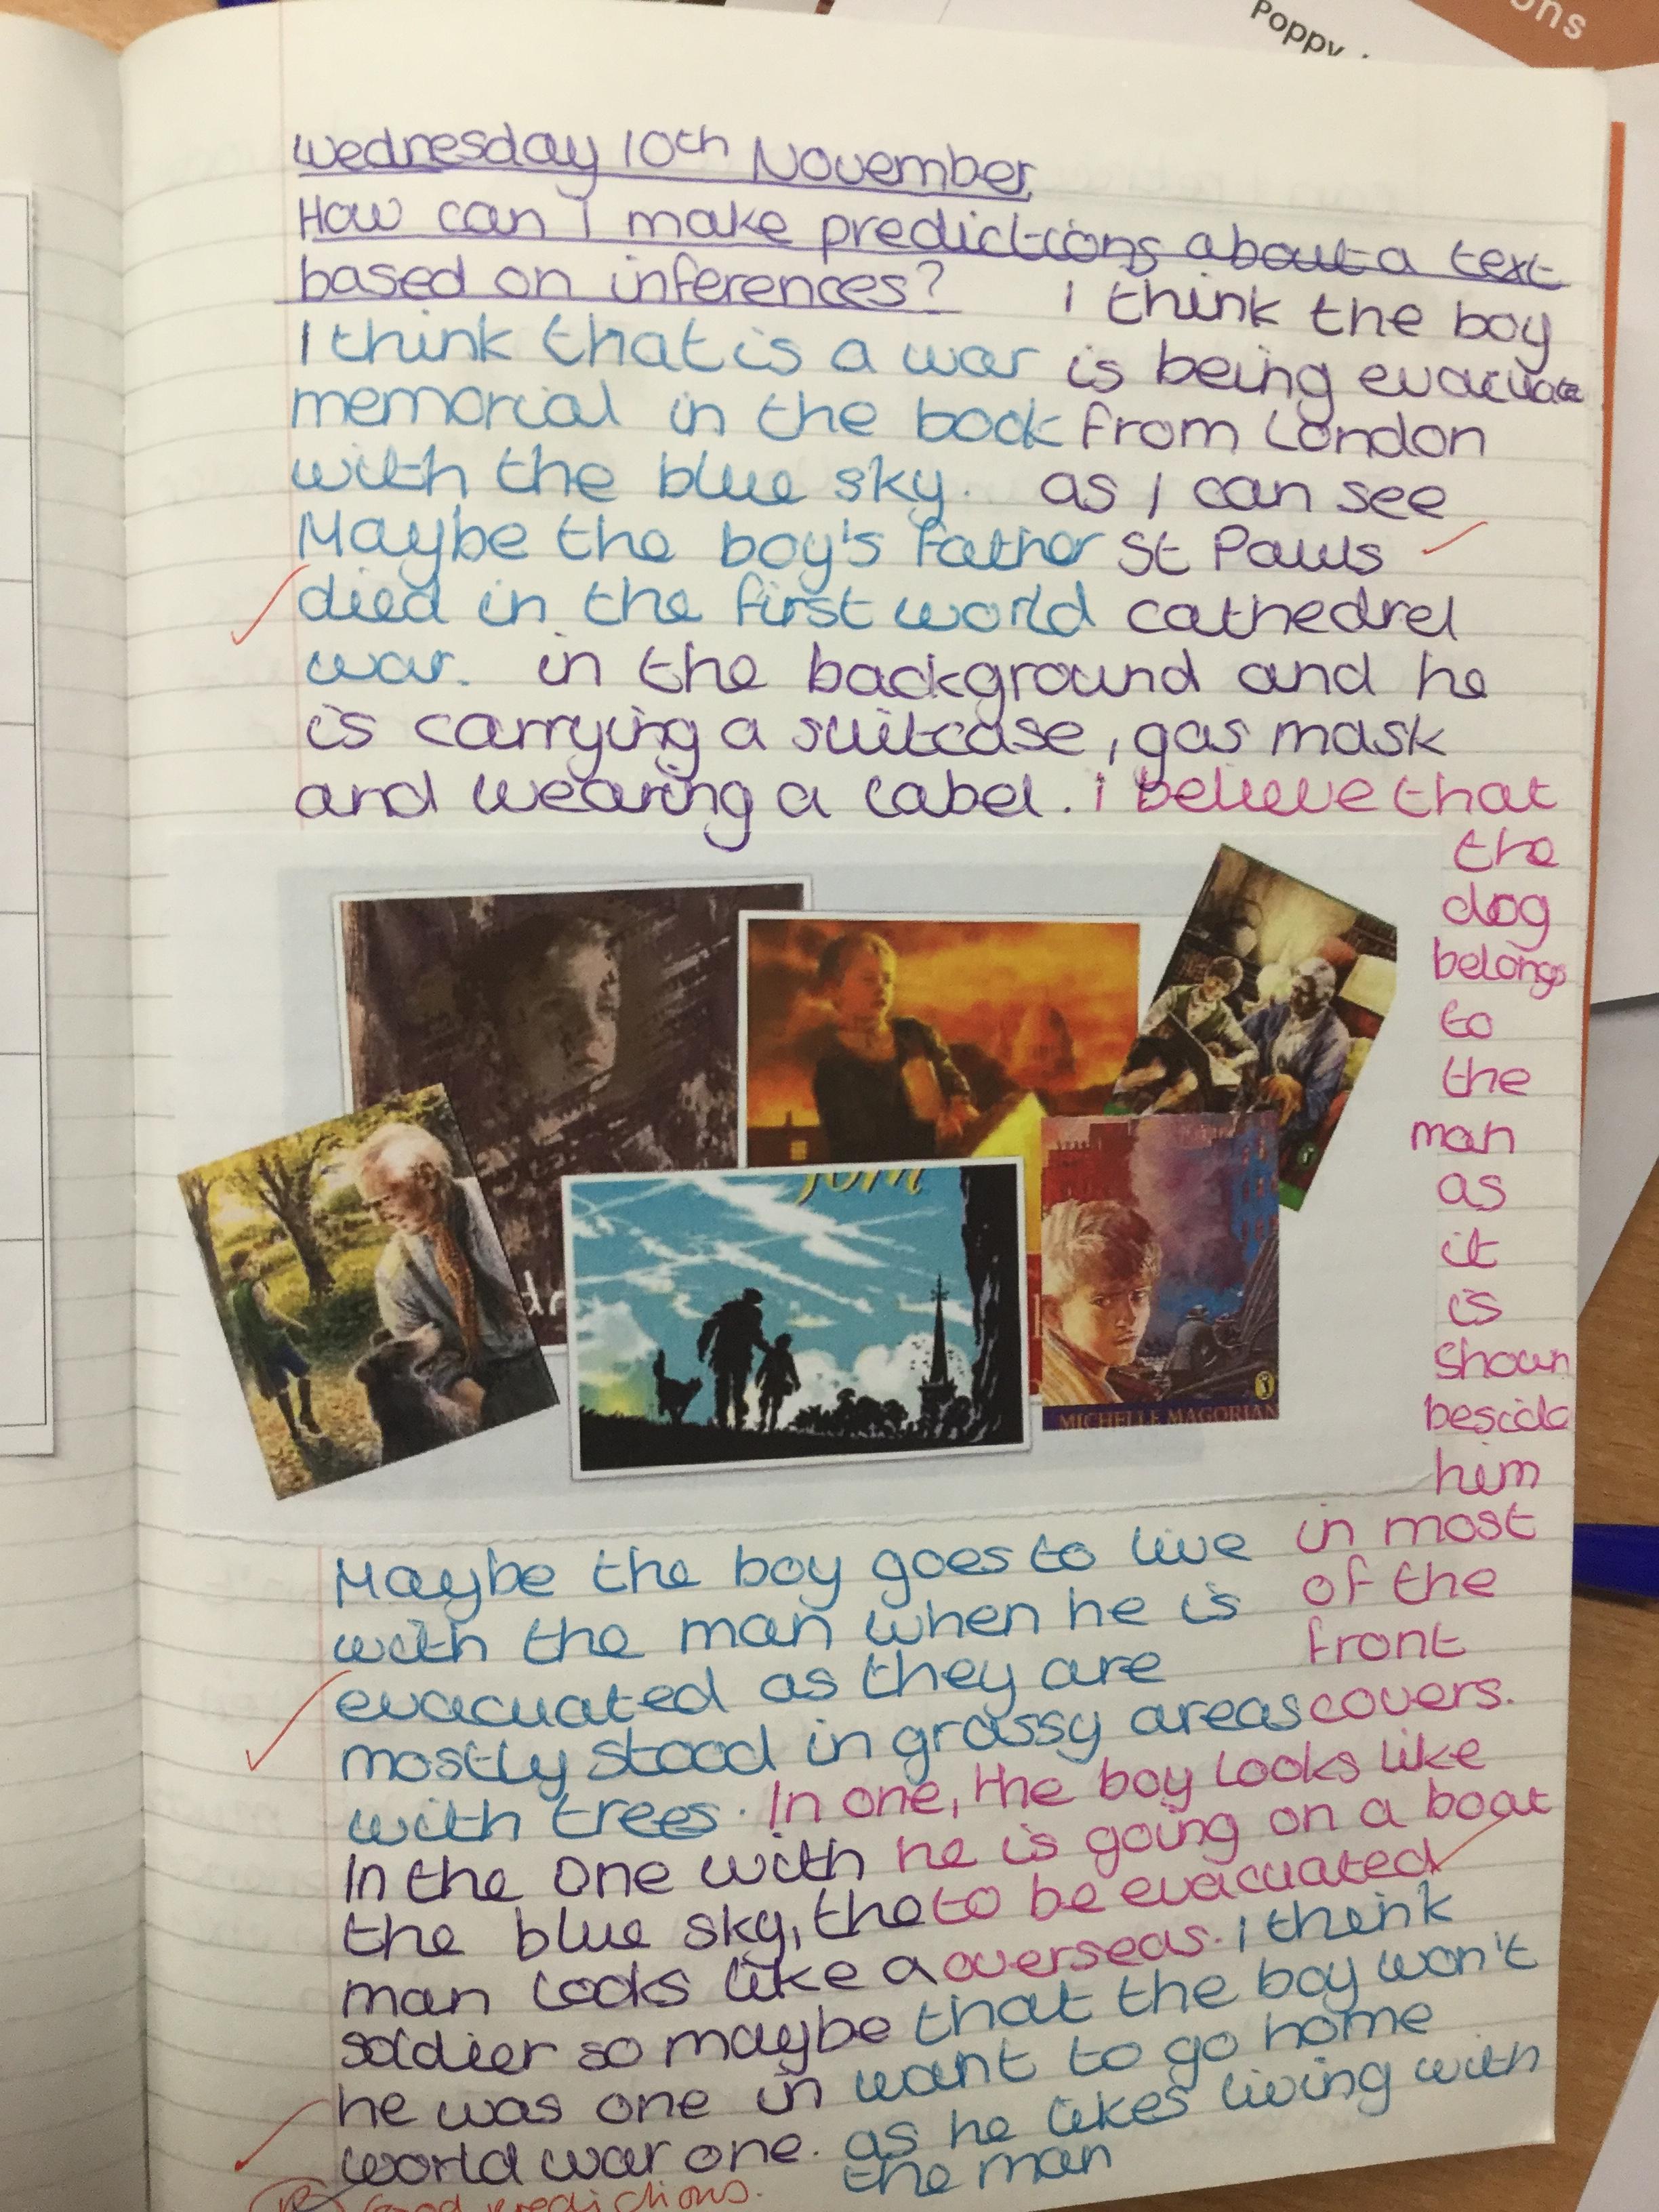 Poppy
ons
Wednesday 10th November
How can I make predictions about a text
based on inferences?
I think that is a war
memorial in the book
with the blue sky.
Maybe the boy's father
died in the first world
war.
I think the boy
is being evacuate
from London
as I can see
St Pauls
cathedrel
in the background and he
is carrying a suitcase, gas mask
and wearing a label.
I believe that
the
dog
belongs
to
the
man
as
it
is
shown
beside
him
in most
of the
front
covers.
Tom
MICHELLE MAGORIAN
Maybe the boy goes to live
with the man when he is
evacuated as they are
mostly stood in grassy areas
with trees.
In one, the boy looks like
he is going on a boat
to be evacuated
overseas.
In the one with
the blue sky, the
man looks like a
soldier so maybe
he was one in
world war one.
I think
that the boy won't
want to go home
as he likes living with
the man
Good predictions.